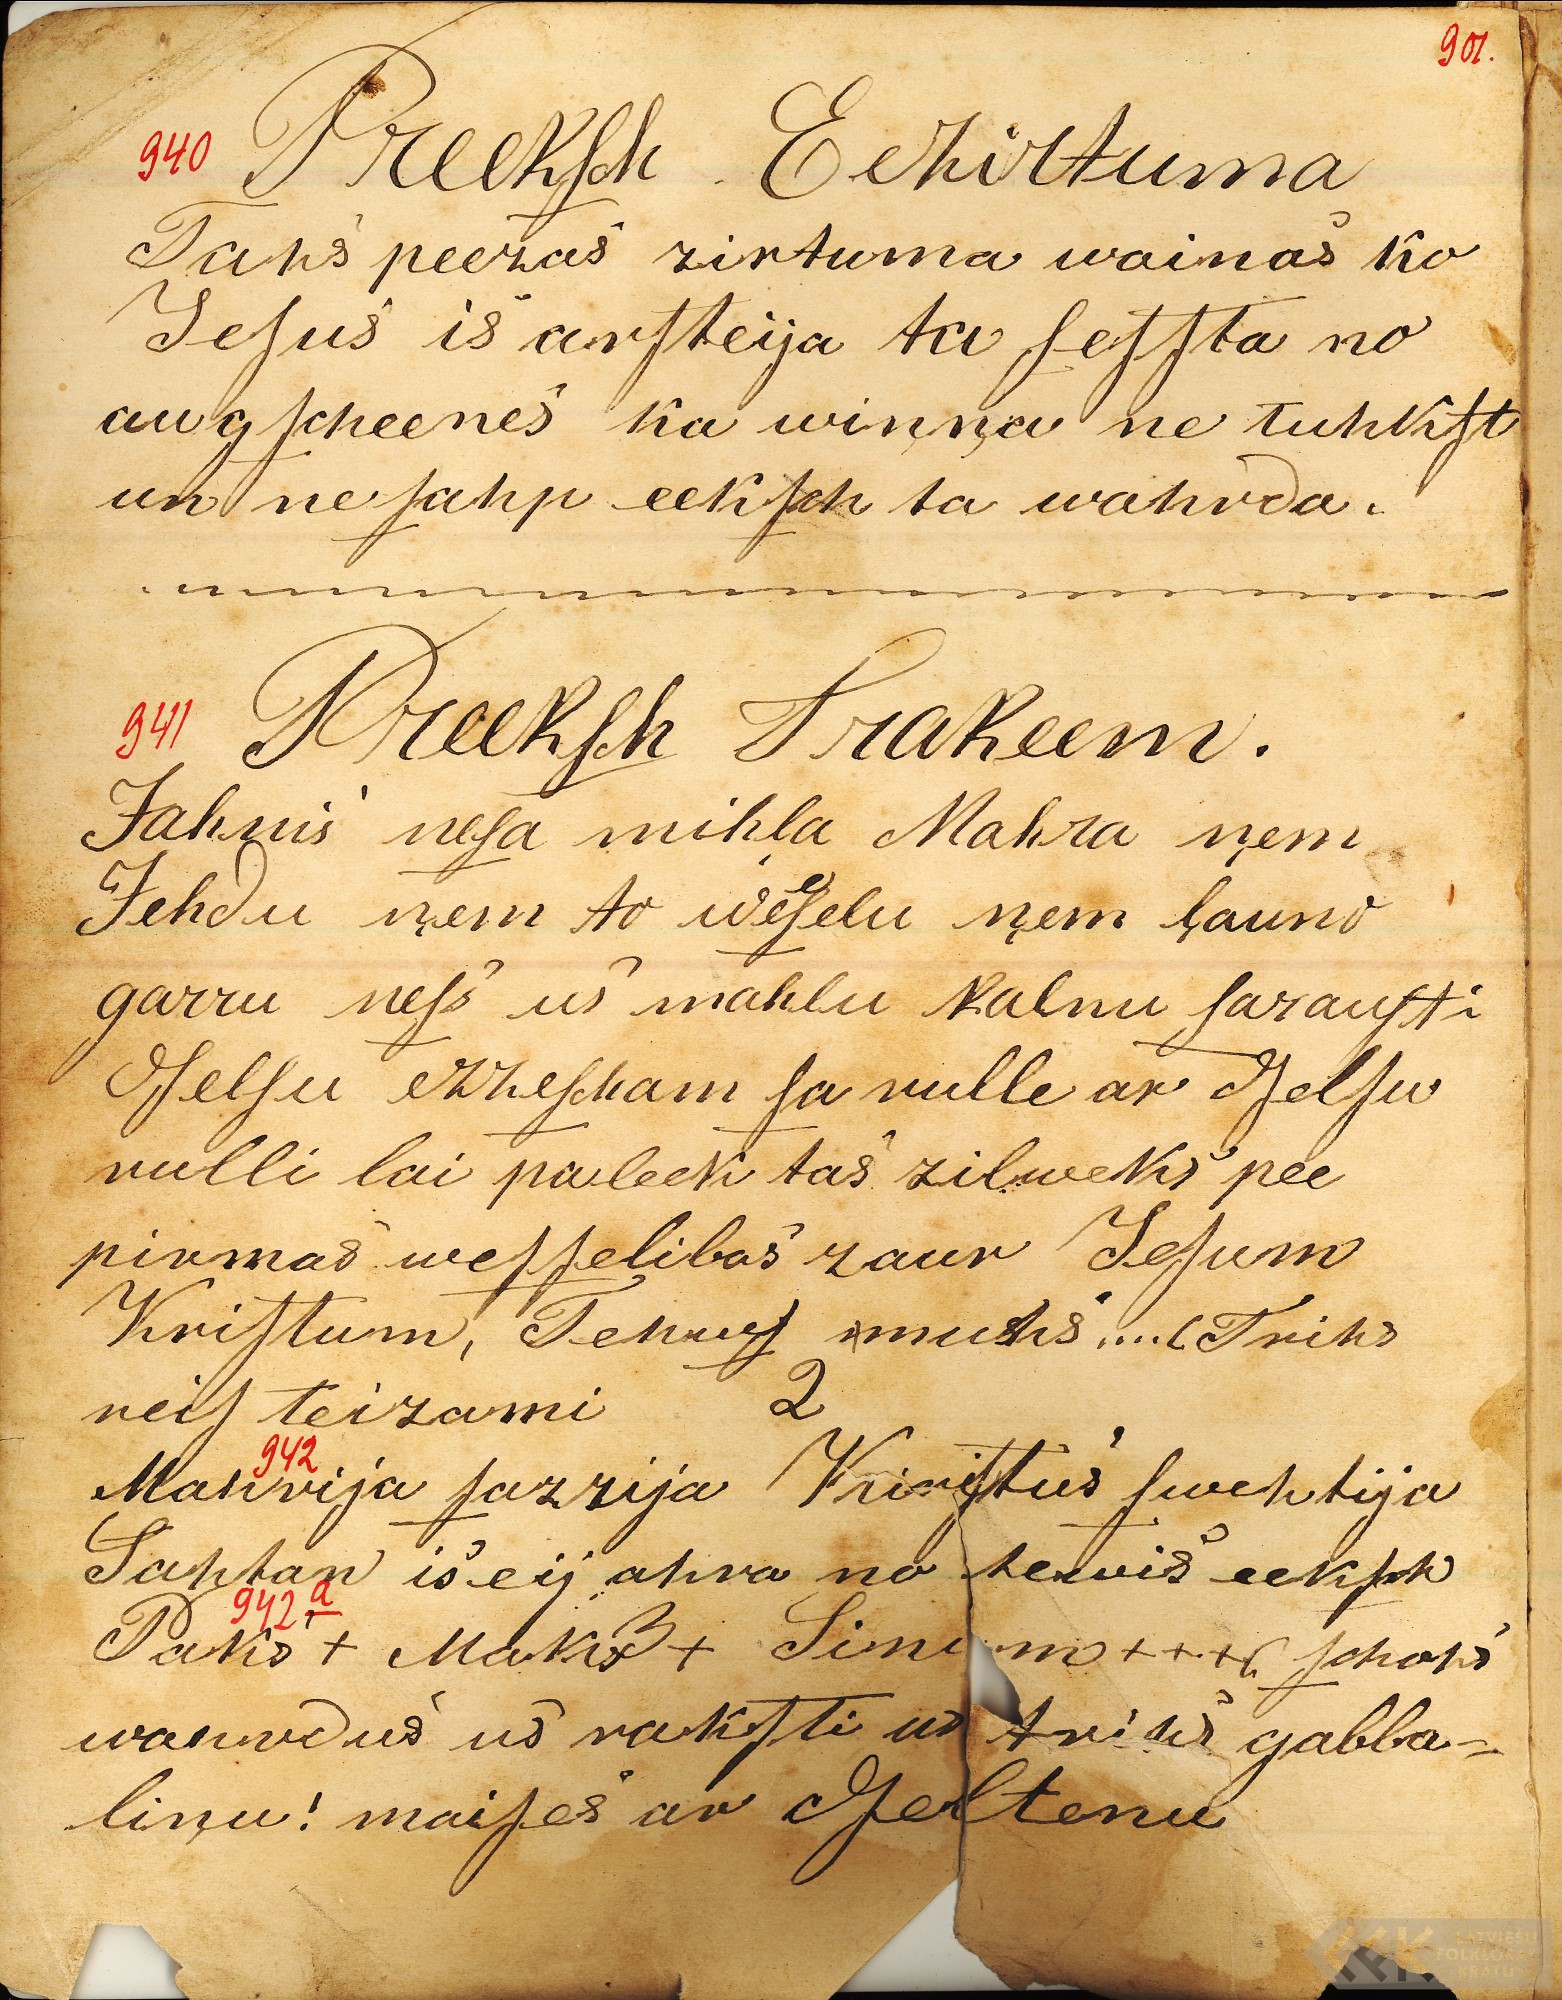 901.
940 Preeksch Eezirtuma
Tahs peezas zirtuma wainas ko
Jesus is arsteija ta sessta no
augscheenes ka winņa ne tuhkst
un ne sahp eeksch ta wahrda.
941 Preeksch Trakeem.
Jahnis nesa mihļa Mahra ņem
Jehdu ņem to weselu ņem ļauno
garru ness us mahlu kalnu sarausti
Dselsu ezzescham sa rulle ar dselsu
rulli lai paleek tas zilweks pee
pirmas wesselibas zaur Jesum
Kristum, Tehws muhs....(Trihs
reis teizami 2
942
Mahrija sazzija Kristus swehtija
Sahtan is eij ahra no tewis eeksch
942a
Paks + Maks + Simum +++( schohs
wahrdus us raksti us trihs gabba-
liņu! maises ar dseltenu
LATVIEŠU
FOLKLORAS
KRĀTUVE